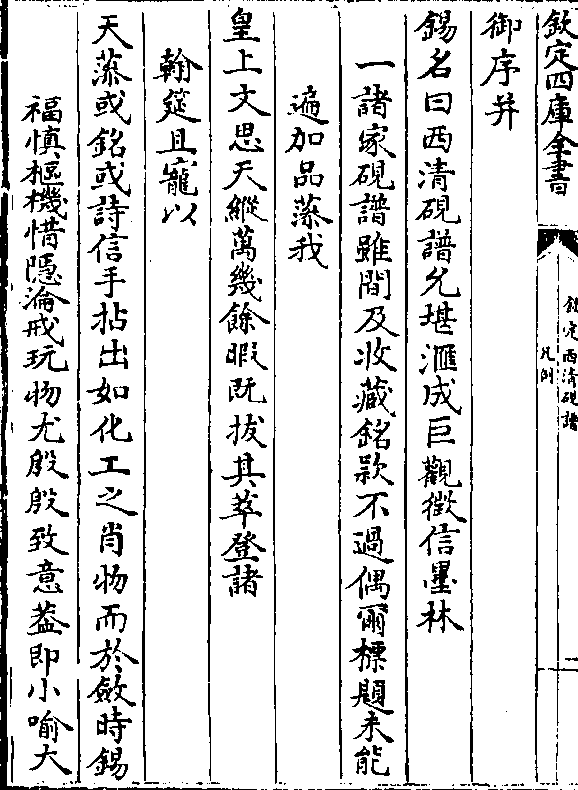 欽定四庫全書
欽定西清硯譜
凡例
御序并
錫名曰西清硯譜允堪滙成巨觀徵信墨林
一諸家硯譜雖間及收藏銘欵不過偶爾標題未能
遍加品藻我
皇上文思天縱萬幾餘暇既拔其萃登諸
翰筵且寵以
天藻或銘或詩信手拈出如化工之肖物而於斂時錫
福慎樞機惜隱淪戒玩物尤殷殷致意葢即小喻大